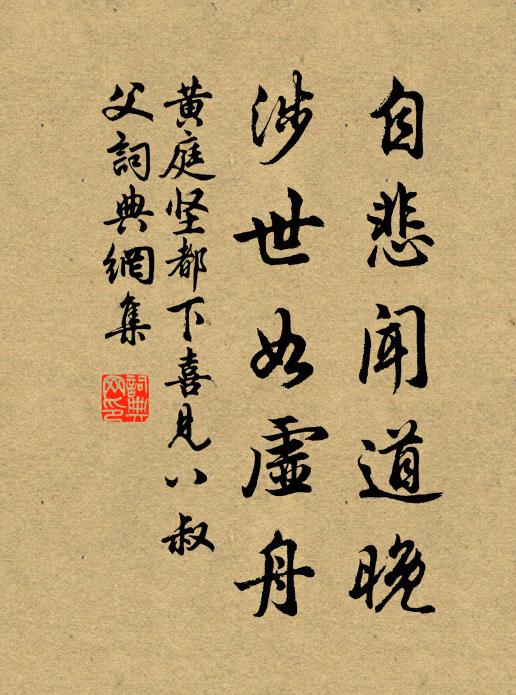 自悲闻道晚
涉世如虚舟
黄庭坚都下喜见八叔
父詞典網集
詞典
网印